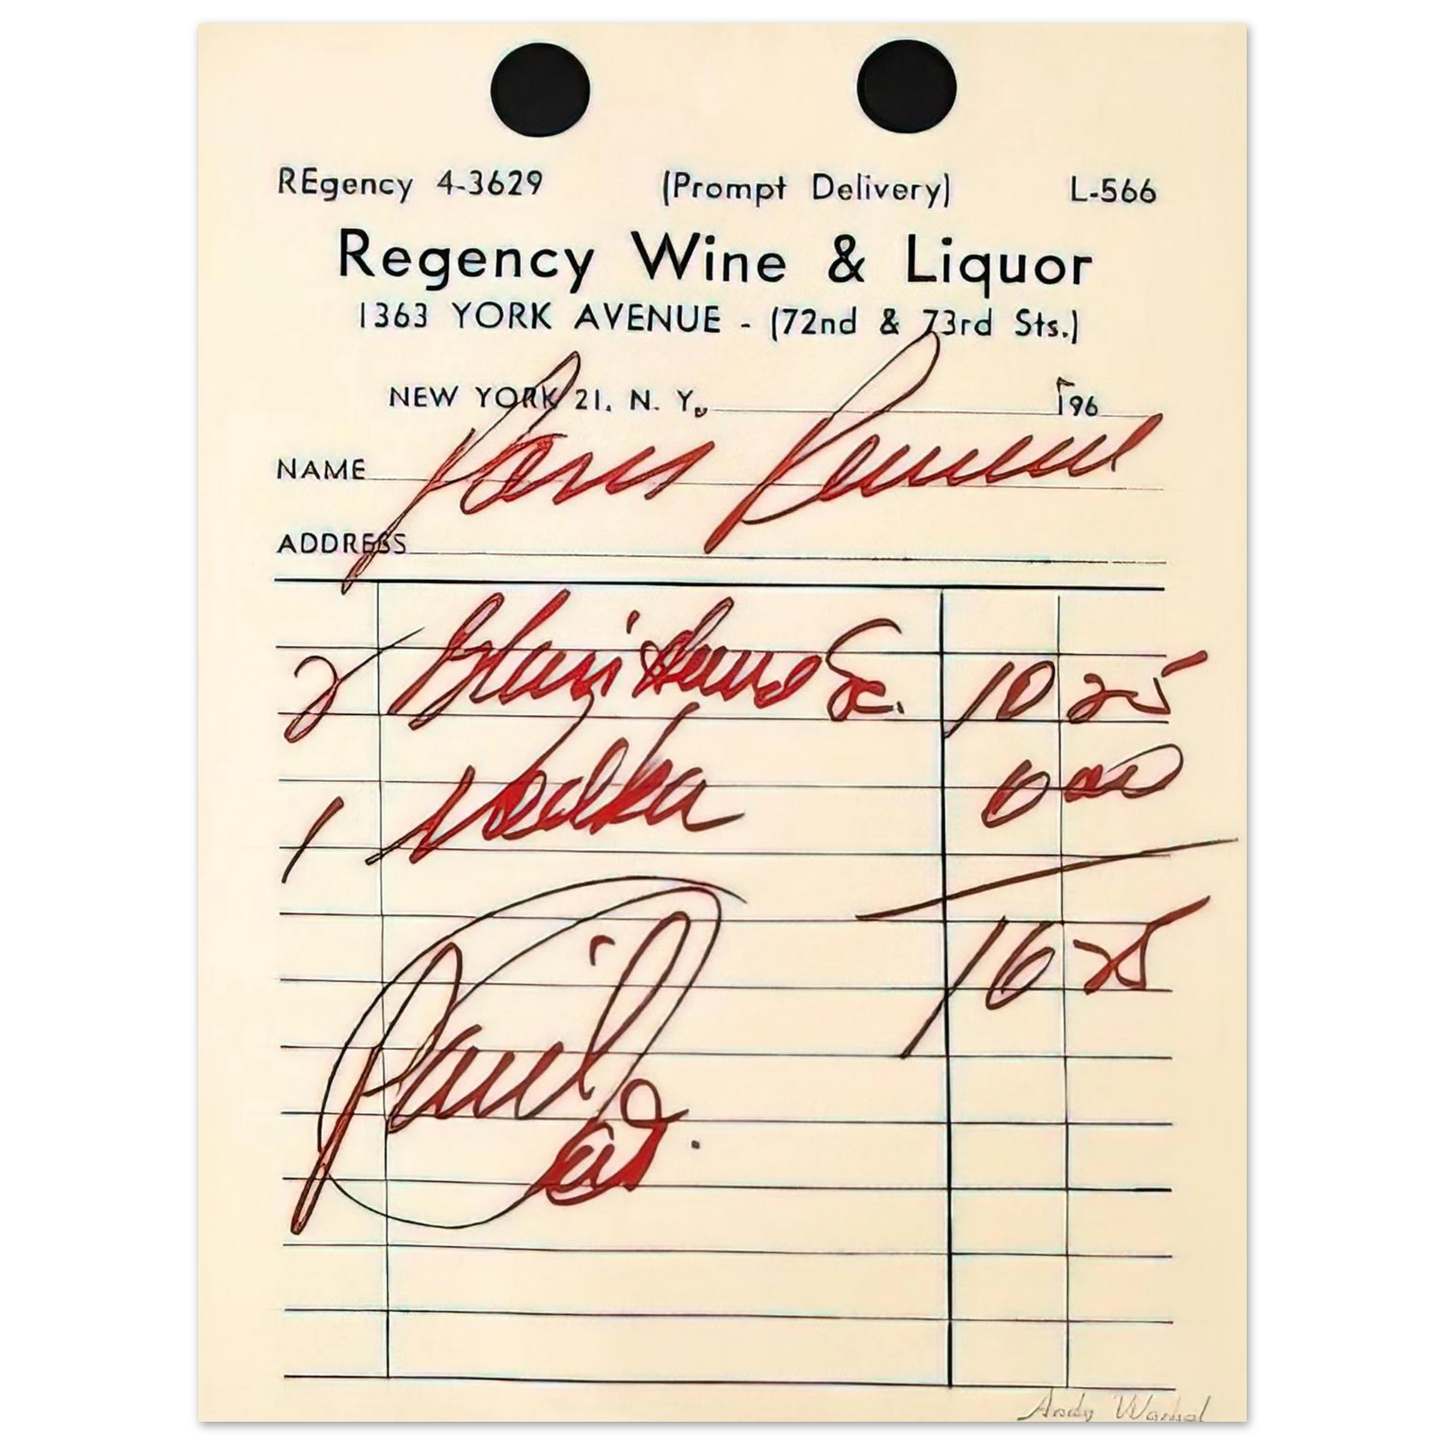 REgency 4-3629 (Prompt Delivery) L-566
Regency Wine & Liquor
1363 YORK AVENUE - (72nd & 73rd Sts.)
NEW YORK 21, N. Y. 196
NAME Paris
ADDRESS
2 Sc. 10 25
1 Vodka 6 00
16 25
Paid
Andy Warhol